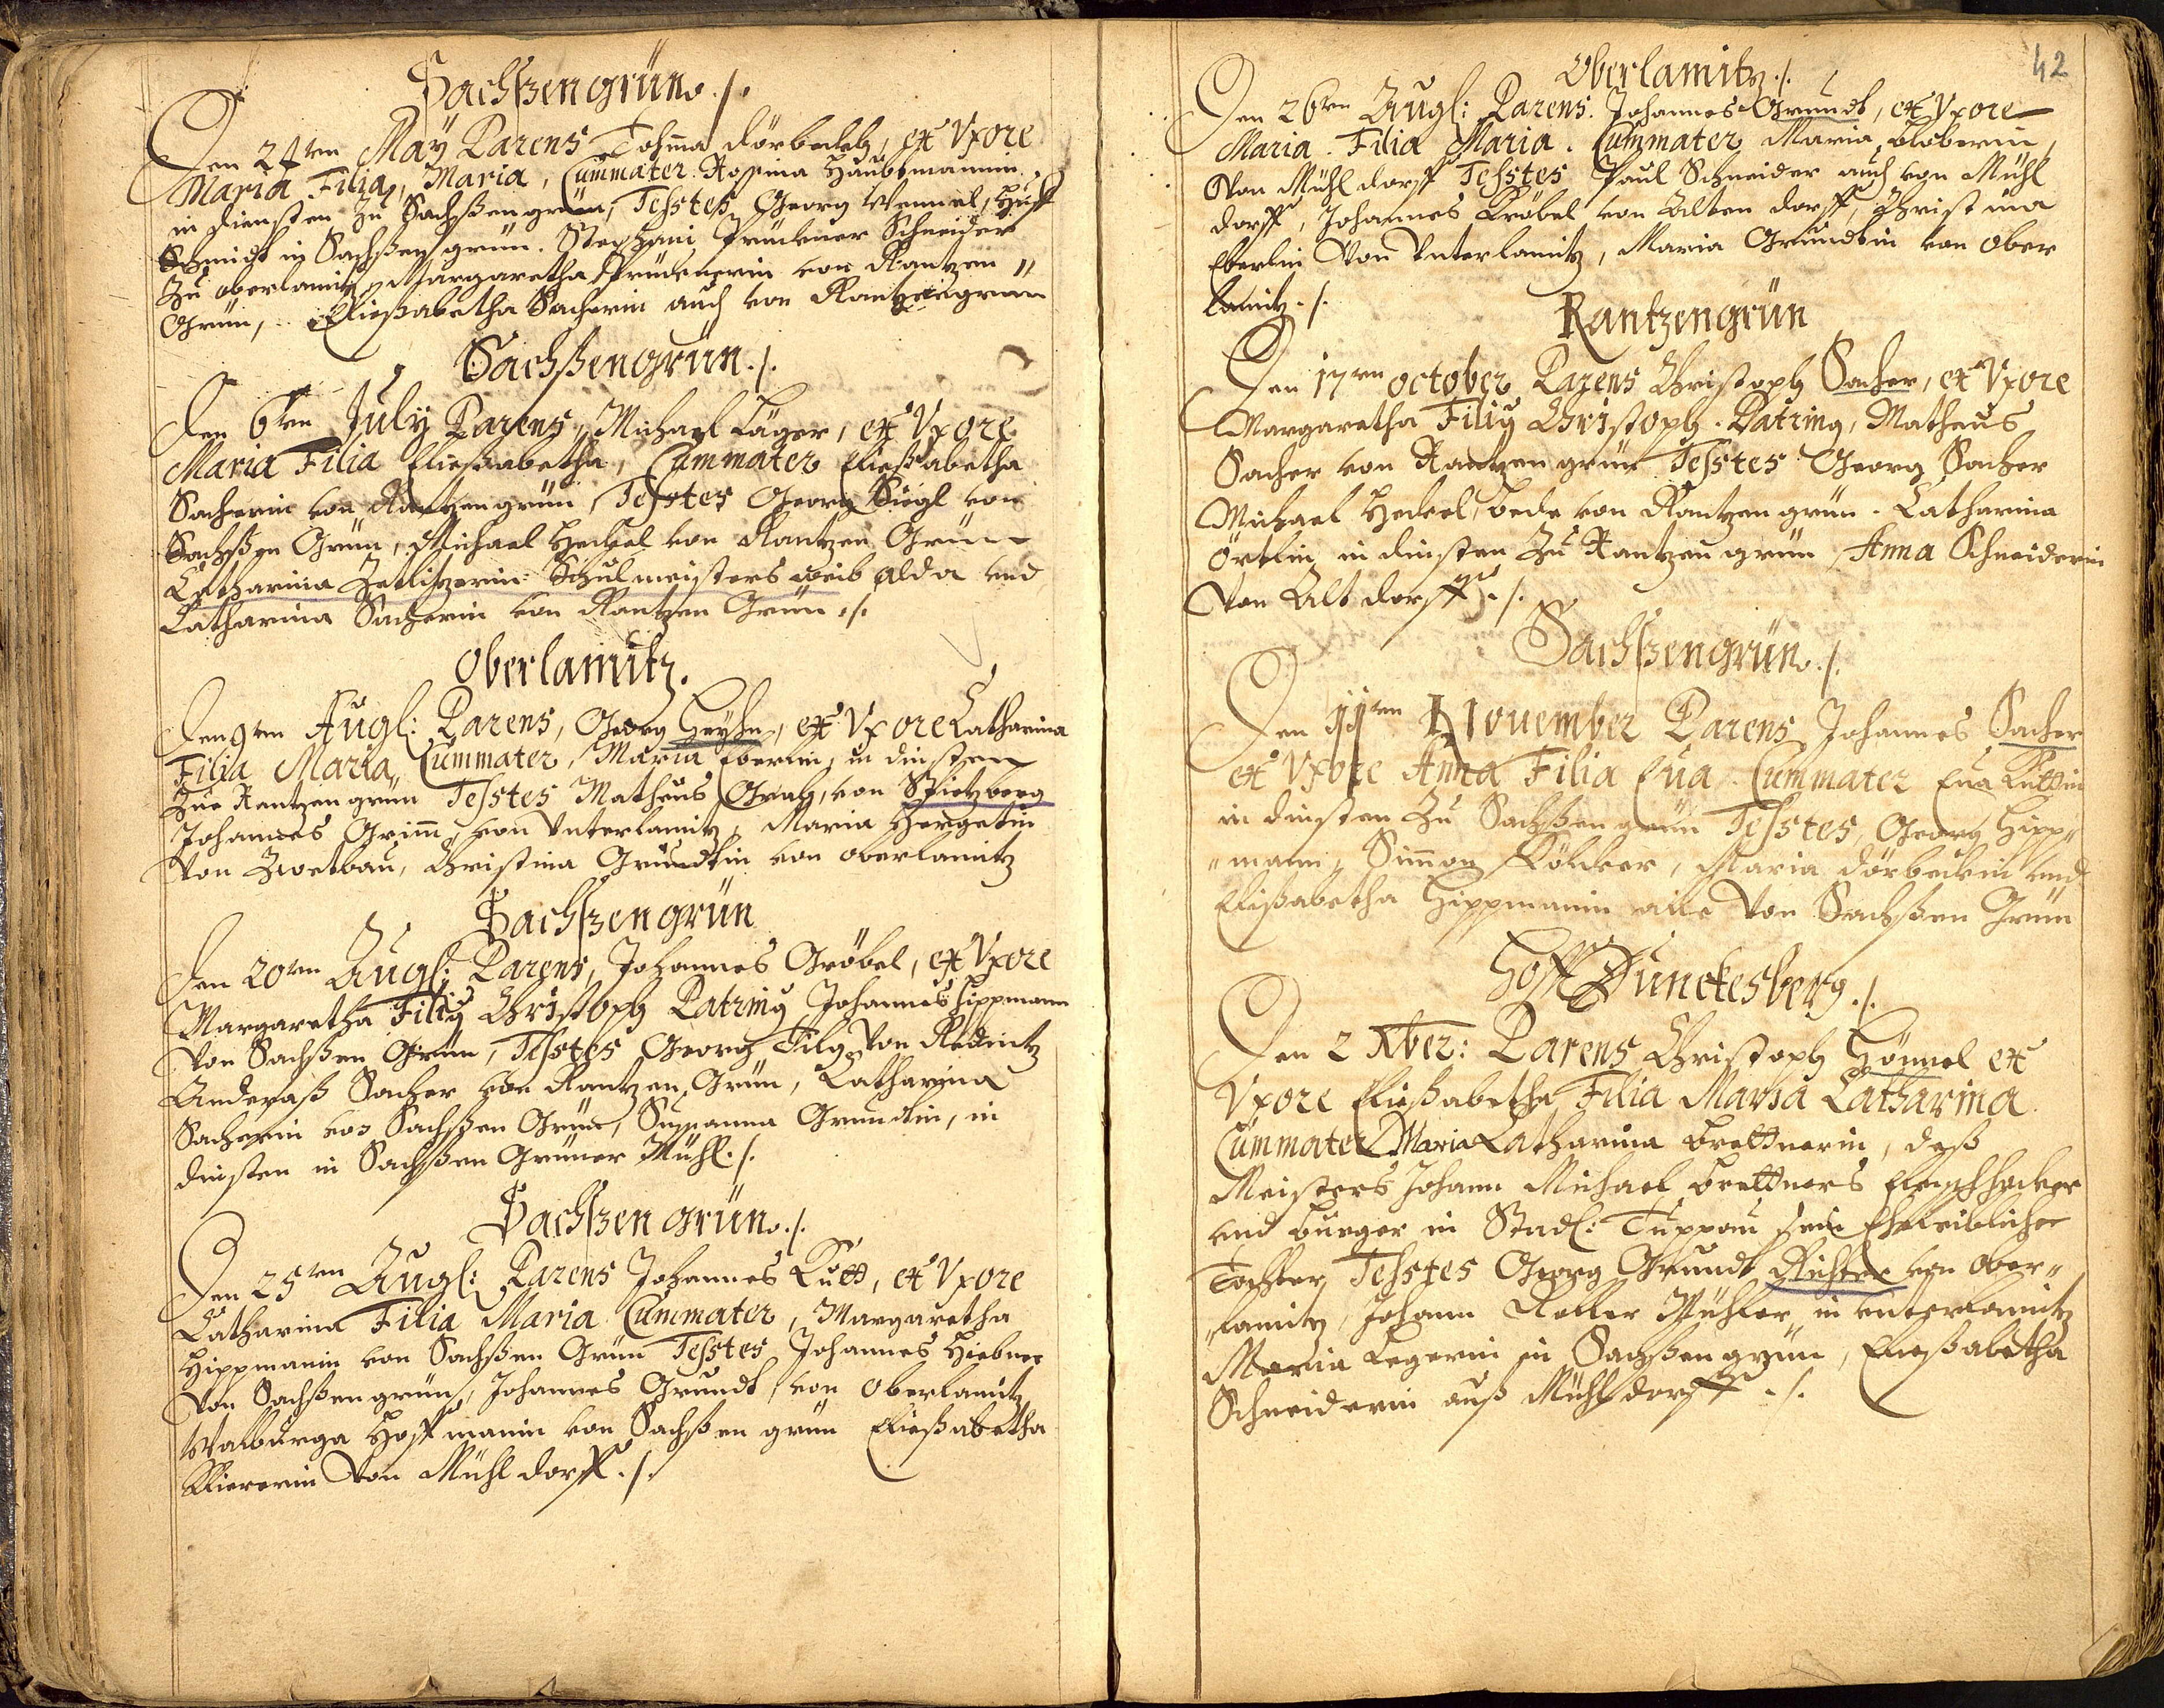 Sachßengrün ./.
Den 24ten May Parens Tohma Dörbeckh, ex Vxore
Maria Filia, Maria, Cummater Rosina Haubtmannin
in diensten Zu Sachßengrün, Testes Georg Wennel, Huff
Schmidt in Sachßengrün. Stephani Prückner Schneider
Zu oberlamitz, Margaretha Prücknerin von Rantzen „
Grün, Eliesabetha Sacherin auch von Rantzengrün
Sachßengrün ./.
Den 6ten July Parens, Michael Läger, ex Vxore
Maria Filia Eliesabetha, Cummater Eliesabetha
Sacherin von Rantzengrün, Testes Georg Siegl von
Sachßen Grün, Michael Heckel von Rantzen Grün
Catharina Zetlitzerin Schulmeisters weib alda und
Catharina Sacherin von Rantzen Grün ./.
Oberlamitz.
Den 9ten Augl: Parens, Georg Heyhn, ex Vxore Catharina
Filia Maria, Cummater, Maria Eberlin, in dinsten
Zue Rantzengrün Testes Matheus Grah, von Spietzberg
Johannes Grimm, von Vnterlamitz, Maria Hergetin
Von Zwetbau, Christina Grundtin von oberlamitz
Sachßengrün
Den 20ten Augl: Parens, Johannes Gröbel, ex Vxore
Margaretha Filiq Christoph Patrinq Johannes Hippmann
Von Sachßen Grün, Testes Georg Filg Von Redenitz
Anderaß Sacher von Rantzen Grün, Catharina
Sacherin von Sachßen Grün, Susanna Grundtin, in
dinsten in Sachßen Grüner Mühl ./.
Sachßen grün ./.
Den 25ten Augl: Parens Johannes Kutt, ex Vxore
Catharina Filia Maria Cummater, Margaretha
Hippmanin von Sachßen Grün Testes Johannes Hiebner
Von Sachßengrün, Johannes Grundt, von Oberlamitz
Walburga Hoffmanin von Sachßen grün Eliesabetha
Von Mühldorff ./.
42
Oberlamitz ./.
Den 26ten Augl: Parens. Johannes Grundt, ex Vxore
Maria. Filia Maria. Cummater Maria
Von Mühldorff Testes Paul Schneider auch von Mühl
dorff, Johannes Kröbel von Alten dorff, Christina
Eberlin Von Vnterlamitz, Maria Grundtin von Ober
lamitz ./.
Rantzengrün
Den 17ten October Parens Christoph Sacher, ex Vxore
Margaretha Filiq Christoph. Patrinq, Matheus
Sacher von Rantzengrün Testes Georg Sacher
Michael Heckel, bede von Rantzengrün. Catharina
Örtlin in dinsten Zu Rantzengrün, Anna Schneiderin
Von Alt dorff ./.
Sachßengrün ./.
Den 11ten November Parens Johannes Sacher
ex Vxore Anna Filia Eua. Cummater Eua Kuttin
in dinsten Zu Sachßengrün Testes, Georg Hipp„
„mann, Simon Köldner, Maria Dörbeckin und
Elißabetha Hippmanin alle Von Sachßen Grün
Hoff Dunckesberg ./.
Den 2 Xber: Parens Christoph Hönnel ex
Vxore Eliesabetha Filia Maria Catharina
Cummater Maria Catharina Brettnerin, deß
Meisters Johann Michael Brettners Fleischhacker
und burger in Stadl: Tuppau sein Ehleibliche
Tochter, Testes Georg Grundt Richter von Ober„
„lamitz, Johann Keller Mühler in unterlamitz
Maria Legerin in Sachßengrün, Eliesabetha
Schneiderin auß Mühldorff ./.